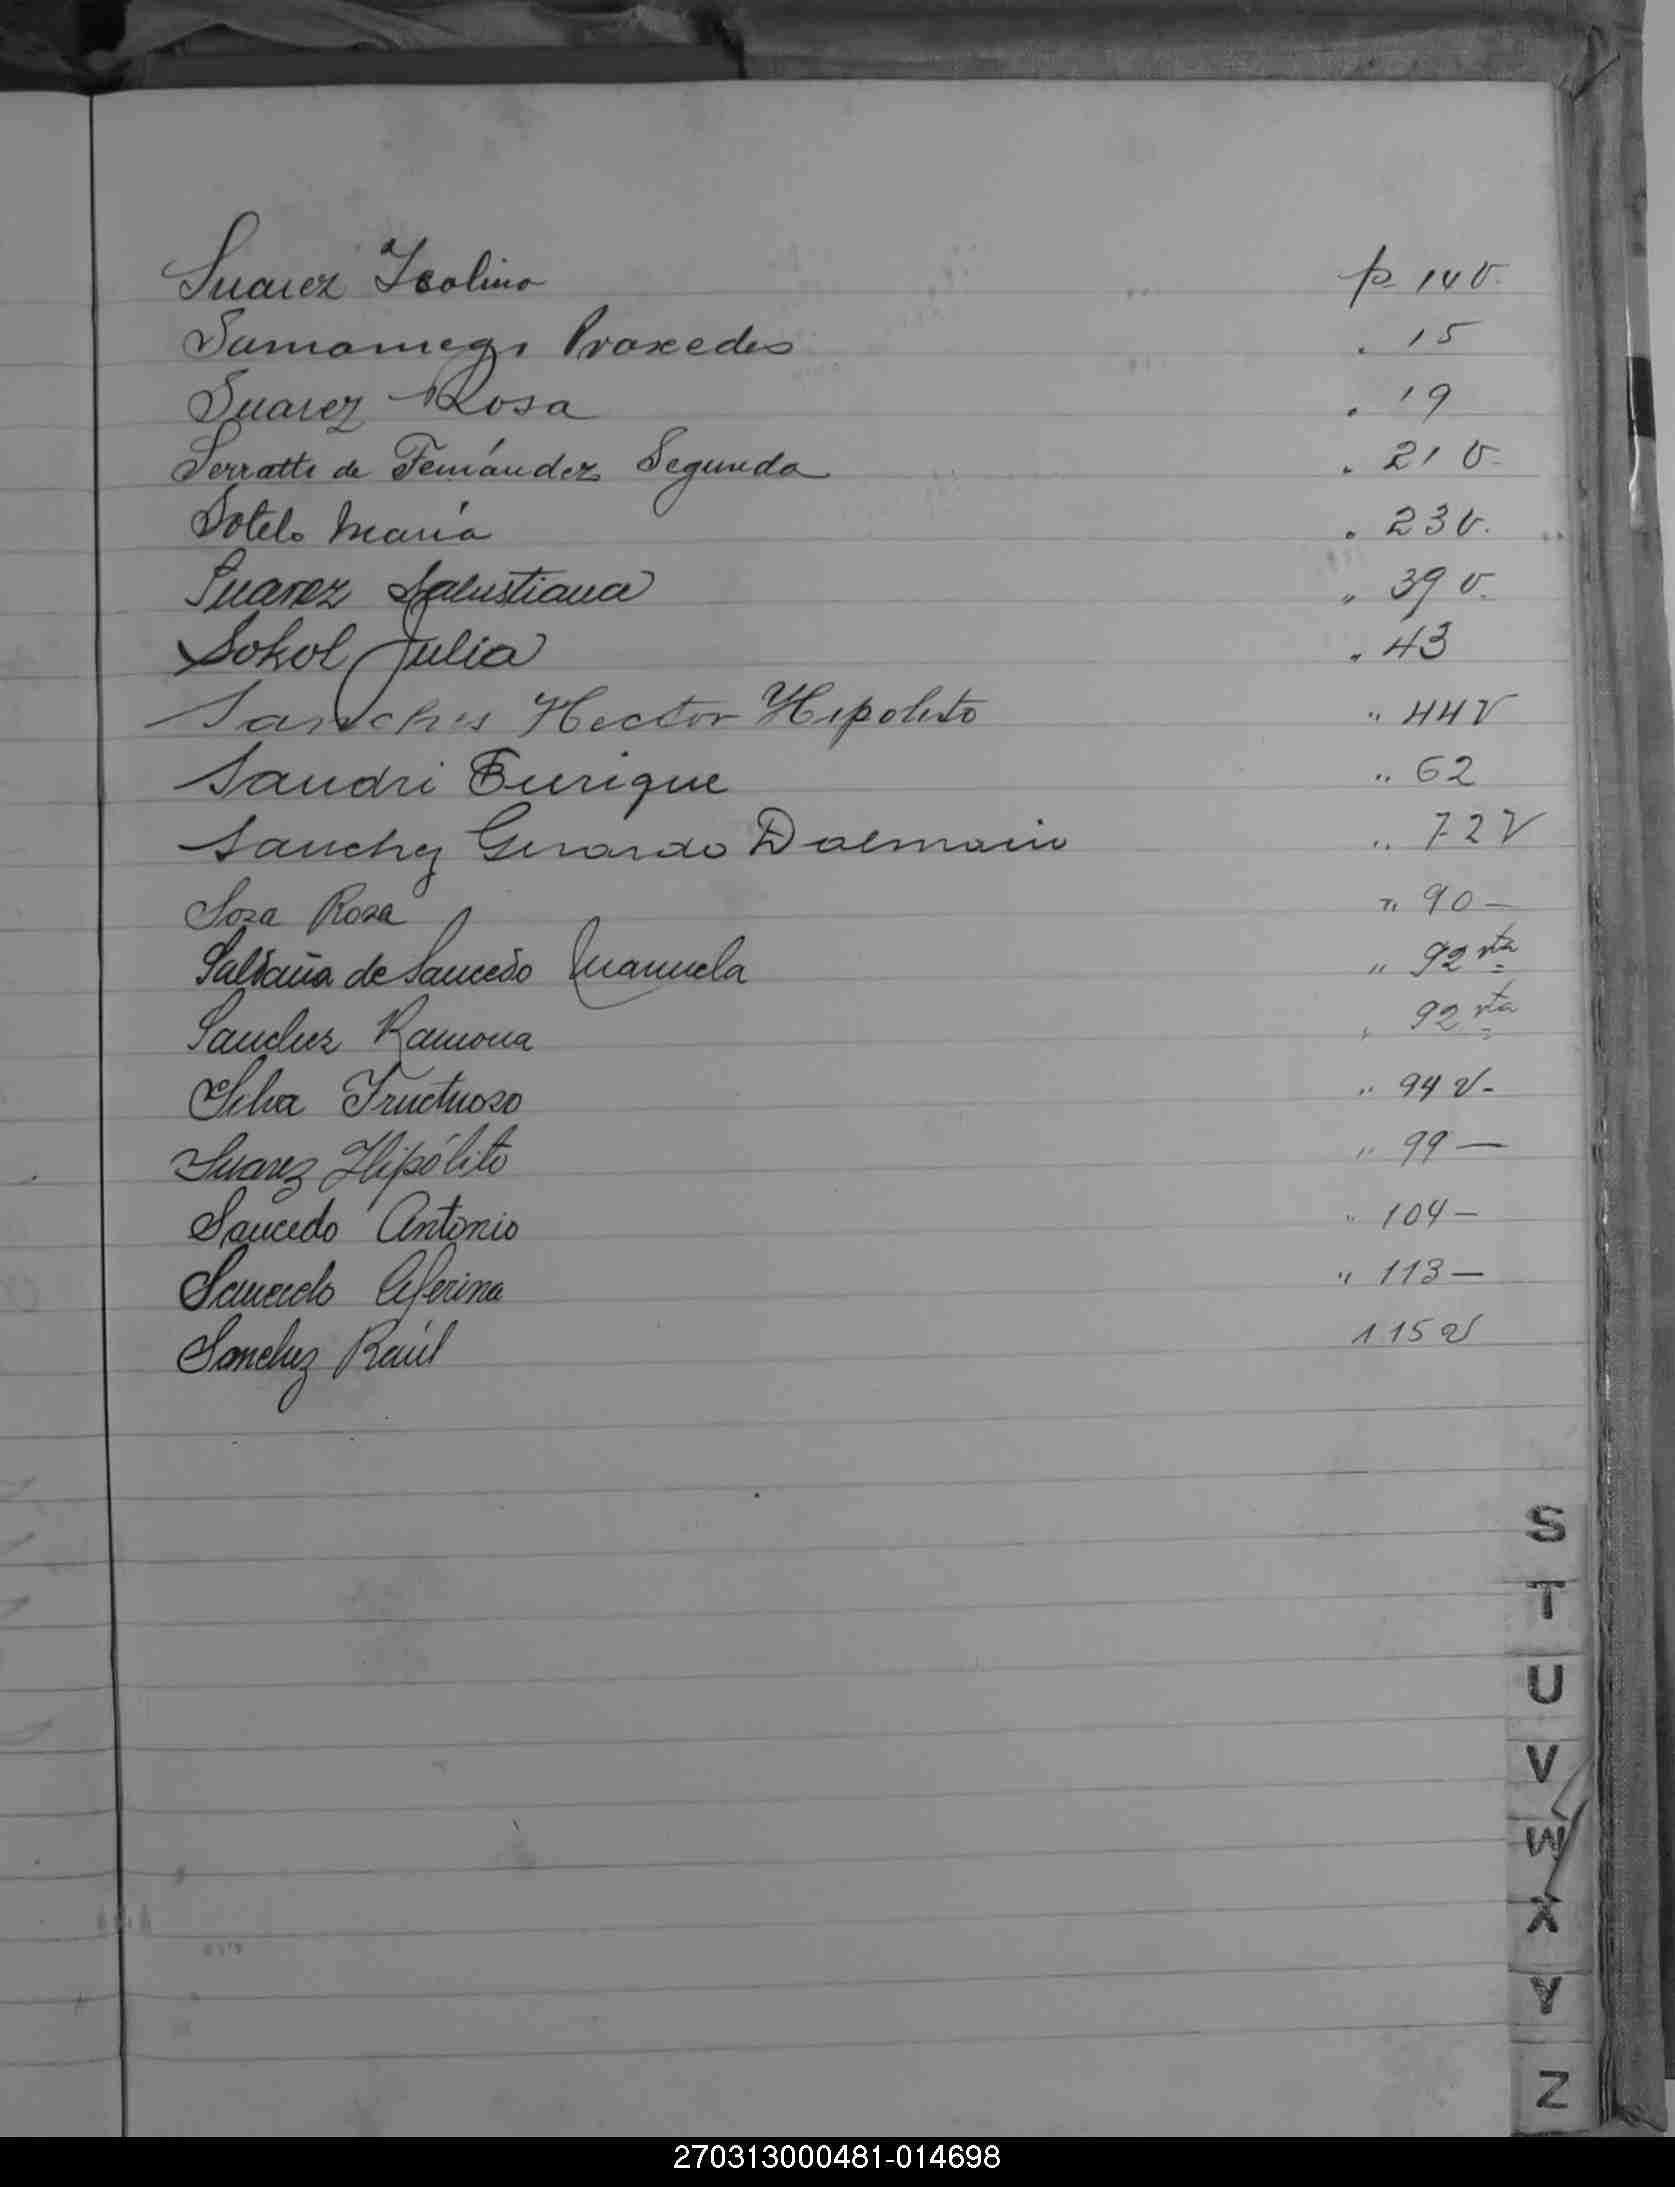 Suarez Isolino p. 14 v.
Samaniego Praxedes . 15
Suarez Rosa . 19
Serratti de Fernández Segunda . 21 v.
Sotelo María . 23 v.
Suarez Salustiana " 39 v.
Sokol Julia " 43
Sanches Hector Hipolito " 44 v
Sandri Enrique " 62
Sanchez Gerardo Dalmacio " 72 v
Sosa Rosa " 90 -
Saldaña de Saucedo Manuela " 92 vta
Sanchez Ramona " 92 vta
Silva Fructuoso " 94 v -
Suarez Hipólito " 99 —
Saucedo Antonio " 104 -
Saucedo Ceferina " 113 —
Sanchez Raúl 115 v
S
T
U
V
W
X
Y
Z
270313000481-014698